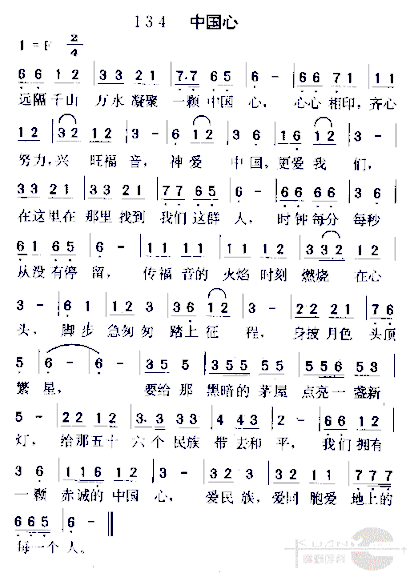 134 中国心
1=F 2/4
6 6 1 2 | 3 3 2 1 | 7. 7 6 5 | 6 - | 6 6 7 1 | 1 1
远隔千山 万水凝聚 一颗中国 心, 心心相印, 齐心
1 2 | 3 2 1 2 | 3 - | 6 1 2 | 3 3 2 | 1 6 1 2 | 3 -
努力, 兴 旺福 音, 神爱 中国, 更爱我 们,
3 3 2 1 | 3 3 2 1 | 7 7 6 5 | 6 - | 6 6 6 6 | 3 6
在这里在 那里找到 我们这群 人, 时钟每分 每秒
6 1 6 5 | 6 - | 1 1 1 1 | 1 1 1 1 | 1 2 | 3 3 2 1 2
从没有停 留, 传福音的 火焰时刻 燃烧 在心
3 - | 6 1 | 1 2 3 | 3 6 1 2 | 3 - | 2 2 2 1 | 7 6
头, 脚步 急匆匆 踏上征 程, 身披月色 头顶
5 | 6 - | 6 - | 3 5 5 | 3 5 5 | 1 5 1 5 | 5 5 6 5 3
繁 星, 要给那 黑暗的 茅屋 点亮一盏新
5 - | 2 2 1 2 | 3. 3 3 3 | 2 1 2 | 4 4 3 | 2 2 1 2
灯, 给那五十 六个民族 带去和 平, 我们拥有
3 6 | 1 1 6 1 2 | 3 - | 1 2 1 | 2 1 2 1 | 7 7 7
一颗 赤诚的中国 心, 爱民族, 爱同胞爱 地上的
6 6 6 5 | 6 - ‖
每一个 人。